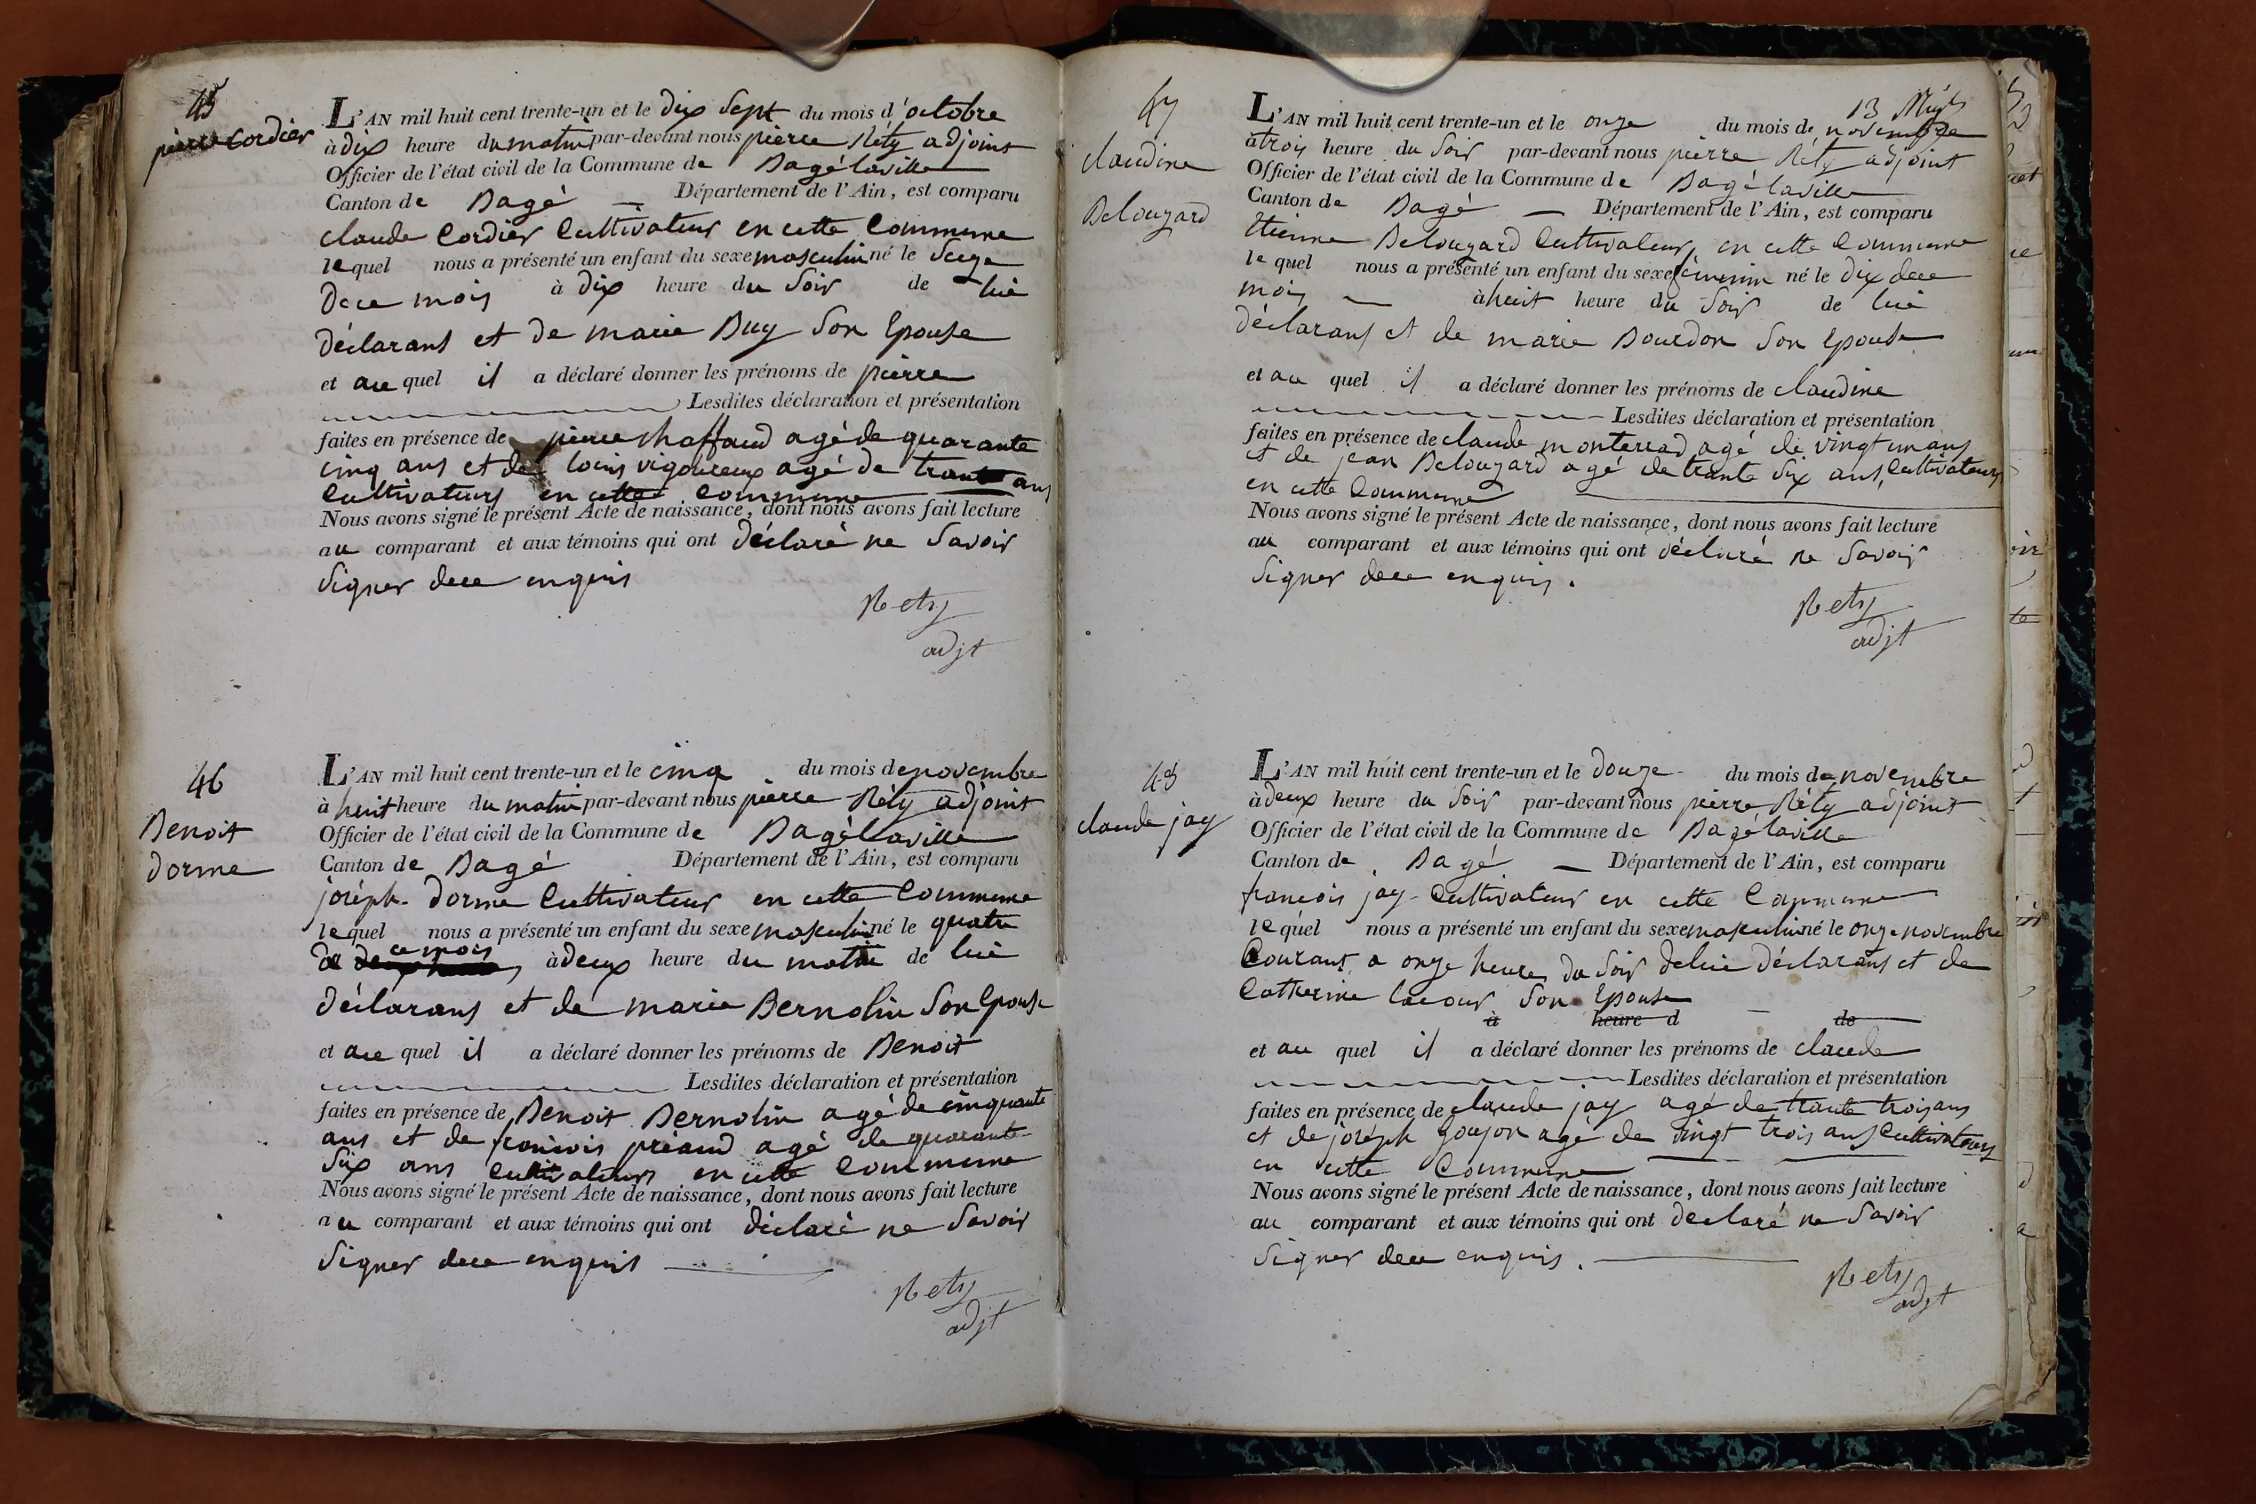 45
pierre Cordier
L'AN mil huit cent trente-un et le dix Sept du mois d'octobre
à dix heure du matin par-devant nous pierre Réty adjoint
Officier de l'état civil de la Commune de Bagélaville
Canton de Bagé — Département de l'Ain, est comparu
claude Cordier Cultivateur en cette Commune
lequel nous a présenté un enfant du sexe masculin né le Seize
dece mois à dix heure du Soir de lui
déclarant et de marie Buy Son Epouse
et au quel il a déclaré donner les prénoms de pierre
Lesdites déclaration et présentation
faites en présence de pierre Chaffaud agé de quarante
cinq ans et de louis vigoureux agé de trante ans
Cultivateurs en cette Commune
Nous avons signé le présent Acte de naissance, dont nous avons fait lecture
au comparant et aux témoins qui ont déclaré ne Savoir
Signer dece enquis
Rety
adjt
46
Benoit
dorme
L'AN mil huit cent trente-un et le cinq du mois de novembre
à huit heure du matin par-devant nous pierre Réty adjoint
Officier de l'état civil de la Commune de Bagélaville
Canton de Bagé Département de l'Ain, est comparu
joséph dorme Cultivateur en cette Commune
lequel nous a présenté un enfant du sexe masculin né le quatre
de ce mois à deux heure du matin de lui
déclarant et de marie Bernolin Son Epouse
et au quel il a déclaré donner les prénoms de Benoit
Lesdites déclaration et présentation
faites en présence de Benoit Bernolin agé de cinquante
ans et de francois préaud agé de quarante
Six ans Cultivateurs en cette Commune
Nous avons signé le présent Acte de naissance, dont nous avons fait lecture
au comparant et aux témoins qui ont déclaré ne Savoir
Signer dece enquis
Rety
adjt
47
claudine
Belouzard
13
L'AN mil huit cent trente-un et le onze du mois de novembre
à trois heure du Soir par-devant nous pierre Réty adjoint
Officier de l'état civil de la Commune de Bagélaville
Canton de Bagé — Département de l'Ain, est comparu
Etienne Belouzard Cultivateur en cette Commune
le quel nous a présenté un enfant du sexe féminin né le dix dece
mois à huit heure du Soir de lui
déclarant et de marie Bourdon Son Epouse
et au quel il a déclaré donner les prénoms de claudine
Lesdites déclaration et présentation
faites en présence de claude monterrad agé de vingt un ans
et de jean Belouzard agé de trante Six ans, Cultivateurs
en cette Commune
Nous avons signé le présent Acte de naissance, dont nous avons fait lecture
au comparant et aux témoins qui ont déclaré ne Savoir
Signer dece enquis.
Rety
adjt
48
claude jay
L'AN mil huit cent trente-un et le douze du mois de novembre
à deux heure du Soir par-devant nous pierre Réty adjoint
Officier de l'état civil de la Commune de Bagélaville
Canton de Bagé — Département de l'Ain, est comparu
francois jay Cultivateur en cette Commune
le quel nous a présenté un enfant du sexe masculin né le onze novembre
Courant a onze heures du Soir delui déclarant et de
Catherine lacour Son Epouse
à heure d de
et au quel il a déclaré donner les prénoms de claude
Lesdites déclaration et présentation
faites en présence de claude jay agé de trante trois ans
et de joséph goujon agé de vingt trois ans Cultivateurs
en cette Commune
Nous avons signé le présent Acte de naissance, dont nous avons fait lecture
au comparant et aux témoins qui ont declaré ne Savoir
Signer dece enquis.
Rety
adjt